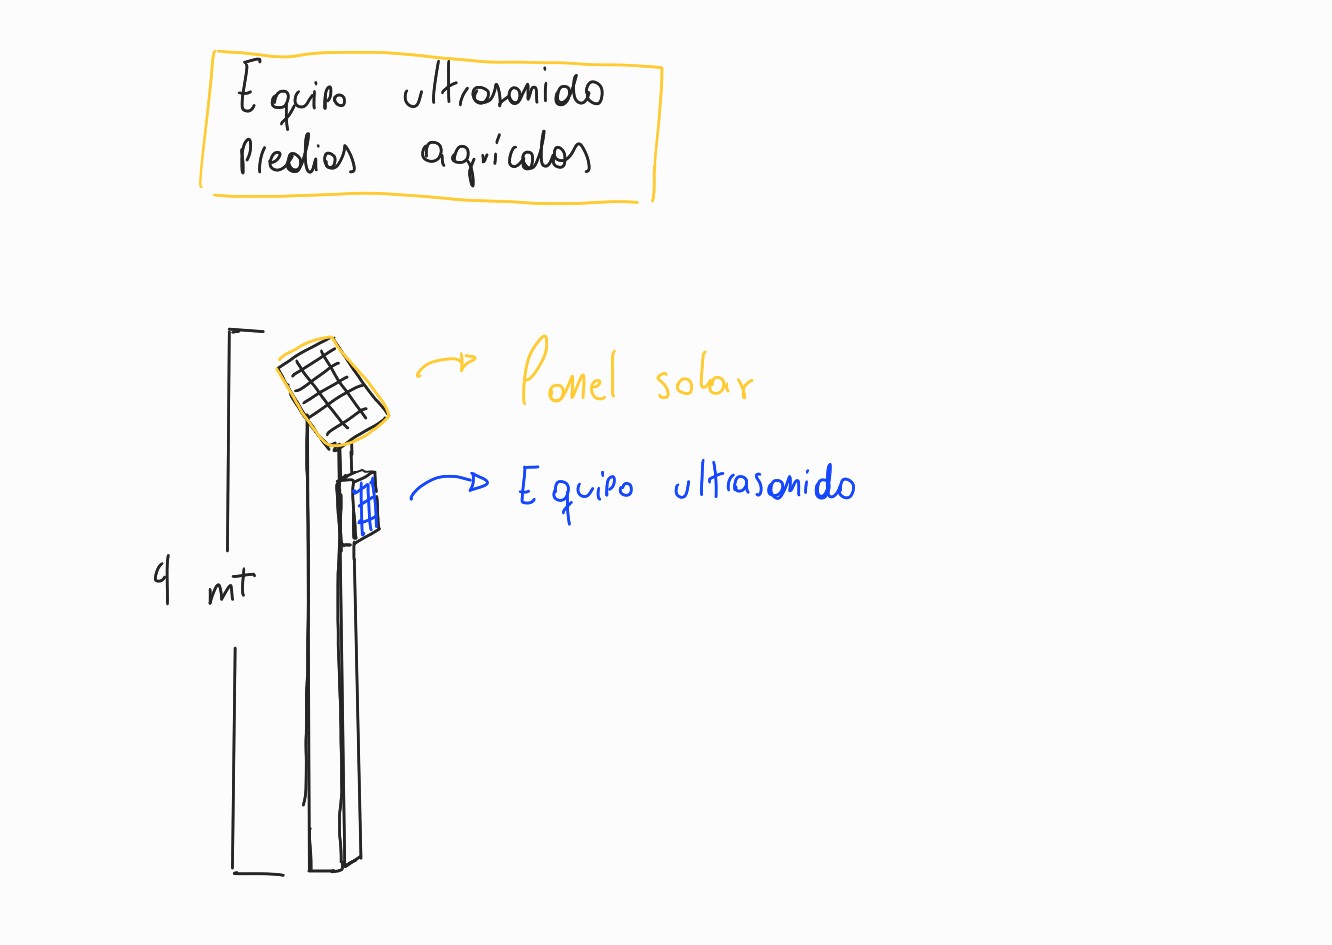 Equipo ultrasonido
Predios agrícolas
Panel solar
Equipo ultrasonido
4 mt